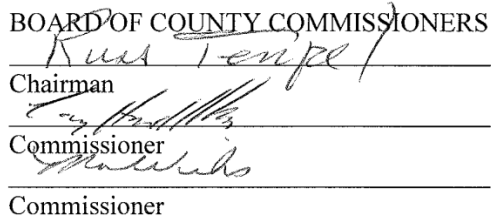 BOARD OF COUNTY COMMISSIONERS
Russ Tempel
Chairman
Commissioner
Commissioner